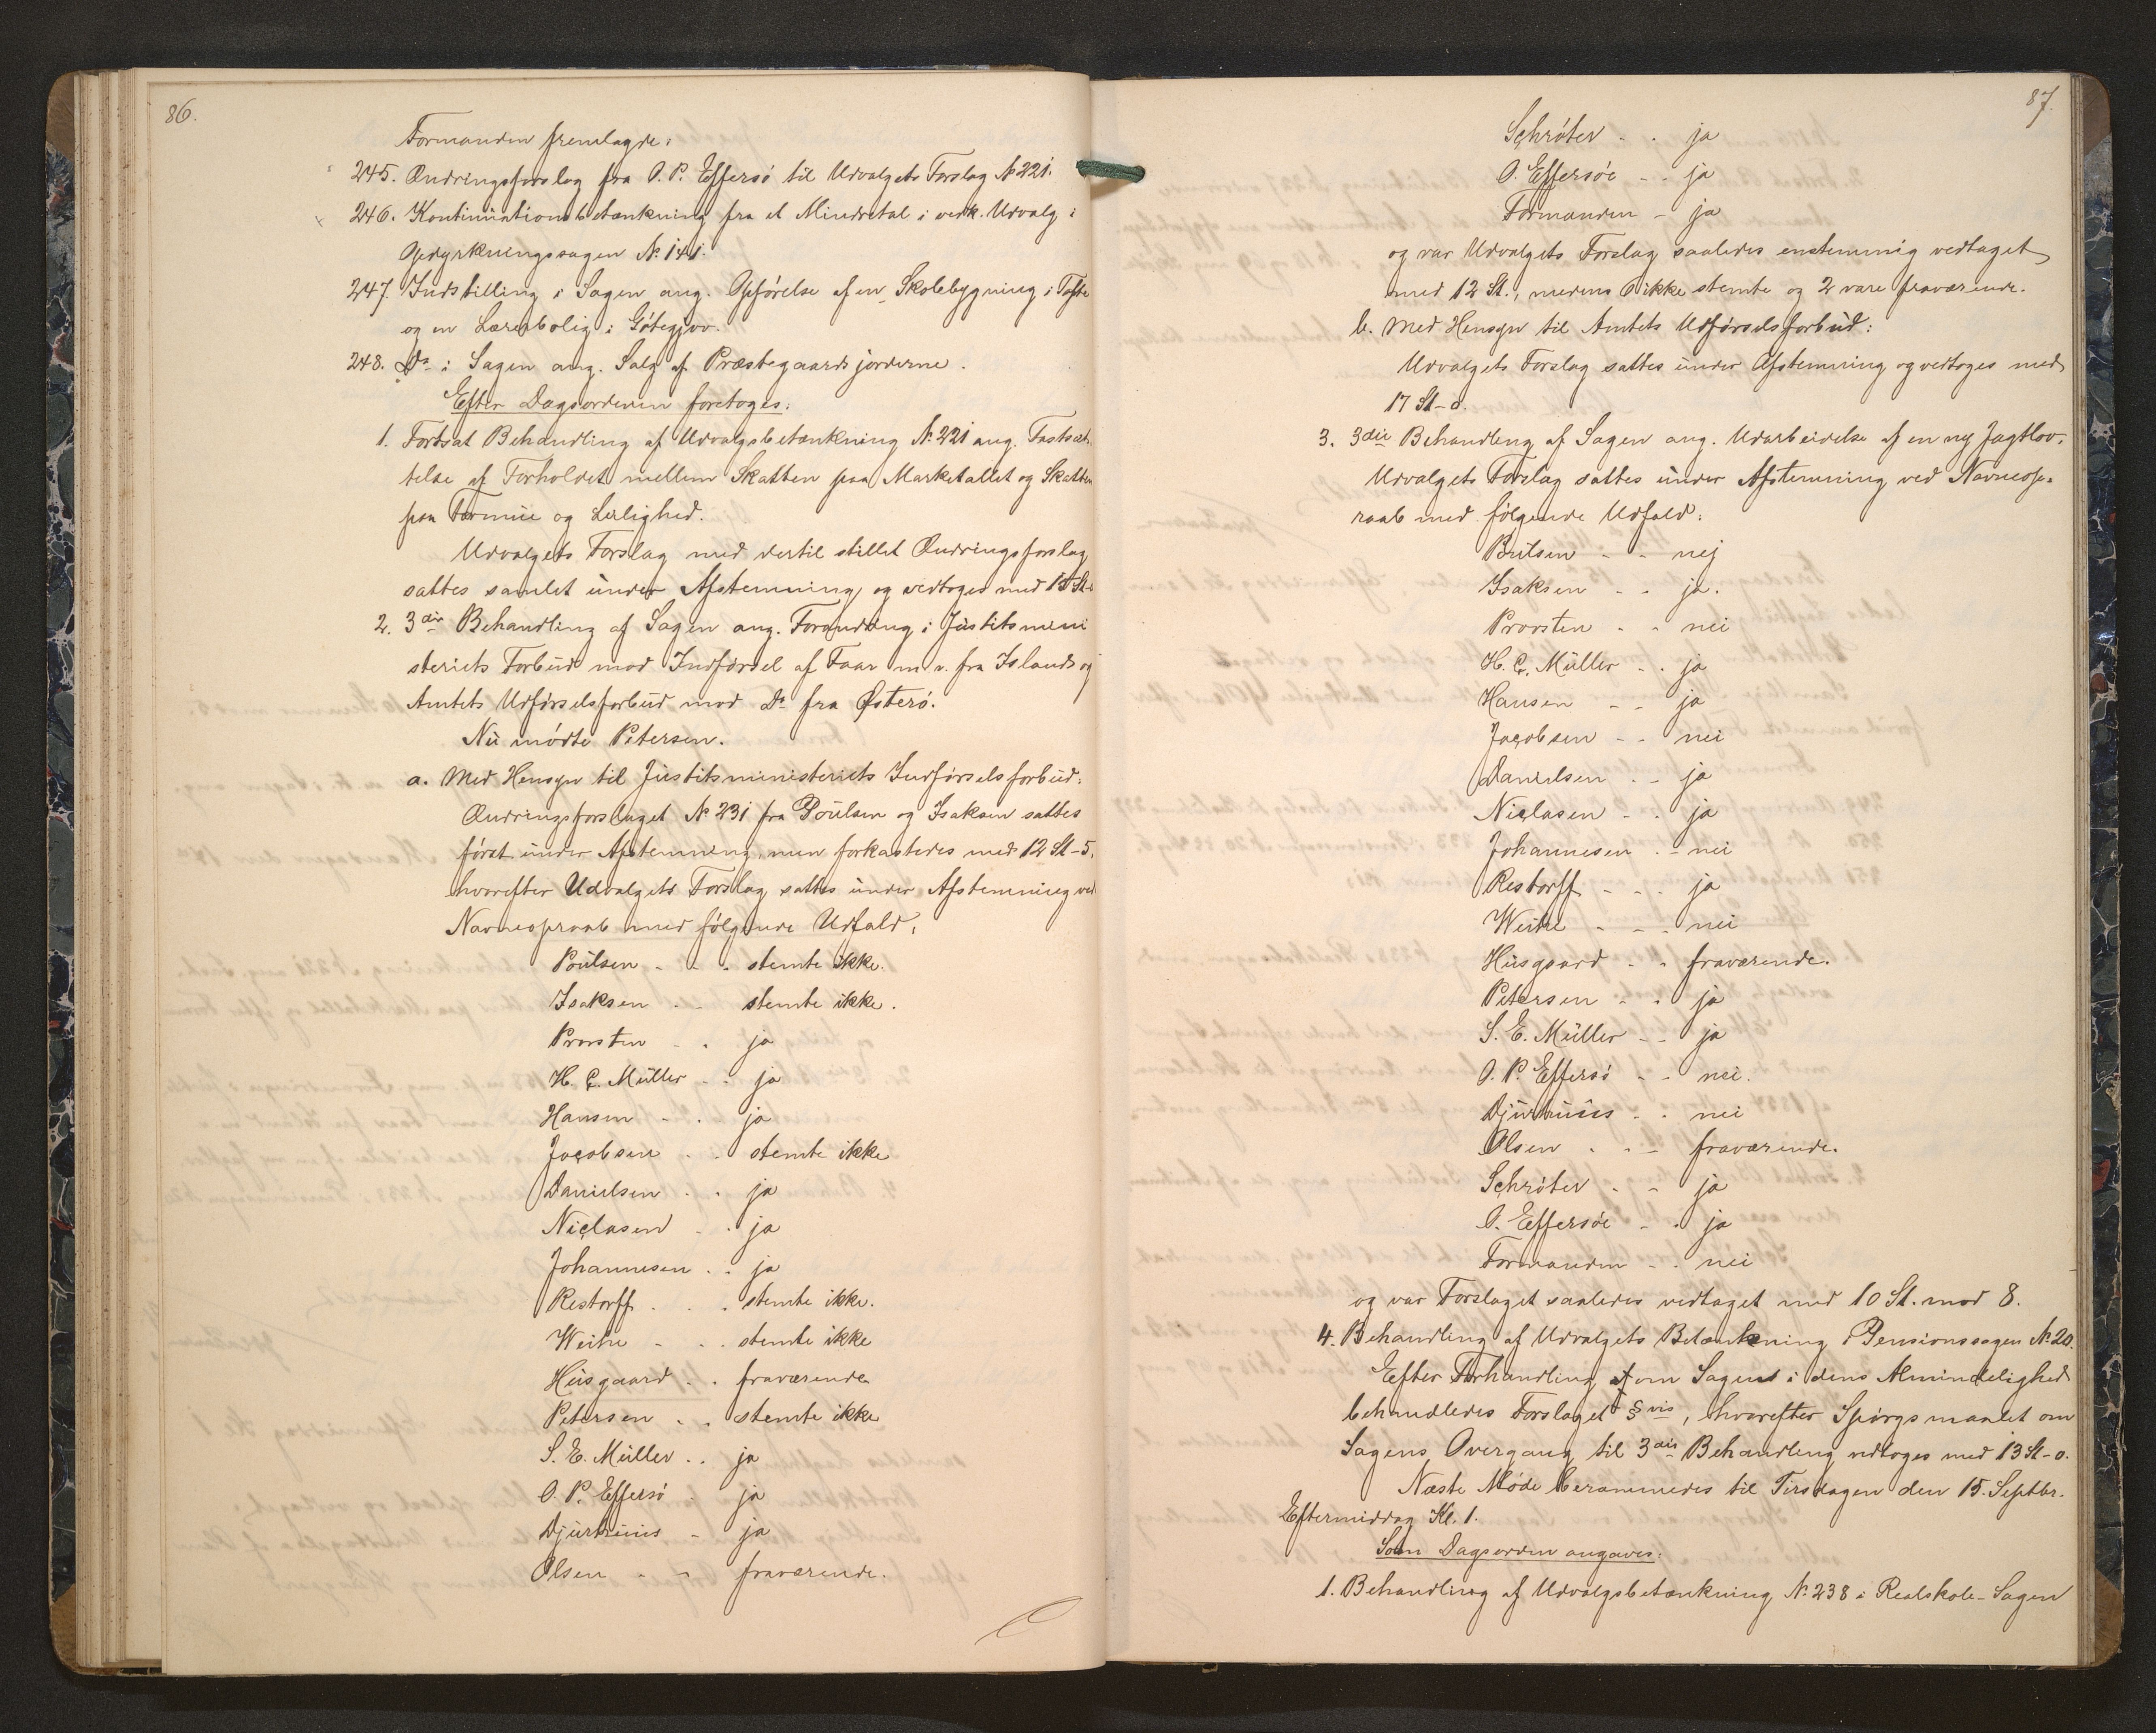 86.
Formanden fremlagde:
245. Ændringsforslag fra O. P. Effersö til Udvalgets Forslag № 221.
246. Kontinuationsbetænkning fra et Mindretal i vedk. Udvalg i
Opdyrkningssagen № 141.
247. Indstilling i Sagen ang. Opførelse af en Skolebygning i Tofte
og en Lærerbolig i Götegjov.
248. Do i Sagen ang. Salg af Præstegaardsjorderne.
Efter Dagsordenen foretoges:
1. Fortsat Behandling af Udvalgsbetænkning № 221 ang. Fastsæt-
telse af Forholdet mellem Skatten paa Marketallet og Skatten
paa Formue og Lejlighed.
Udvalgets Forslag med dertil stillet Ændringsforslag
sattes samlet under Afstemning og vedtoges med 15 St-
2. 3die Behandling af Sagen ang. Forandring i Justitsmini
steriets Forbud mod Indførsel af Faar m. v. fra Island og
Amtets Udførselsforbud mod Do fra Østerö.
Nu mödte Petersen.
a. Med Hensyn til Justitsministeriets Indførselsforbud:
Ændringsforslaget № 231 fra Poulsen og Isaksen sattes
först under Afstemning, men forkastedes med 12 St-5,
hvorefter Udvalgets Forslag sattes under Afstemning ved
Navneopraab med følgende Udfald:
Poulsen - - - stemte ikke.
Isaksen - - stemte ikke.
Provsten - - ja
H. C. Müller - - ja
Hansen - - ja
Jacobsen - - stemte ikke
Danielsen - - ja
Niclasen - - ja
Johannesen - - ja
Restorff - - - stemte ikke.
Weihe - - - stemte ikke
Husgaard - - fraværende
Petersen - - stemte ikke
S. E. Müller - - ja
O. P. Effersö - ja
Djurhuus - ja
Olsen - - fraværende.
87.
Schröter - - ja
O. Effersöe - - ja
Formanden - ja
og var Udvalgets Forslag saaledes enstemmig vedtaget
med 12 St., medens 6 ikke stemte og 2 vare fraværende.
b. Med Hensyn til Amtets Udførselsforbud:
Udvalgets Forslag sattes under Afstemning og vedtoges med
17 St-0.
3. 3die Behandling af Sagen ang. Udarbeidelse af en ny Jagtlov.
Udvalgets Forslag sattes under Afstemning ved Navneop-
raab med følgende Udfald:
Poulsen - - nej
Isaksen - - ja.
Provsten - - nei
H. C. Müller - - ja
Hansen - - ja
Jacobsen - - nei
Danielsen - - ja
Niclasen - - ja
Johannesen - - nei
Restorff - - - ja
Weihe - - - nei
Husgaard - - fraværende.
Petersen - - ja
S. E. Müller - - ja
O. P. Effersö - - nei.
Djurhuus - - nei
Olsen - - - fraværende.
Schröter - - ja
O. Effersöe - - ja
Formanden - - nei
og var Forslaget saaledes vedtaget med 10 St. mod 8.
4. Behandling af Udvalgets Betænkning i Pensionssagen № 20.
Efter Forhandling om Sagen i dens Almindelighed
behandledes Forslaget § vis, hvorefter Spörgsmaalet om
Sagens Overgang til 3die Behandling vedtoges med 13 St-0.
Næste Møde berammedes til Tirsdagen den 15. Septbr.
Eftermiddag Kl. 1.
Som Dagsorden angaves:
1. Behandling af Udvalgsbetænkning № 238 i Realskole-Sagen